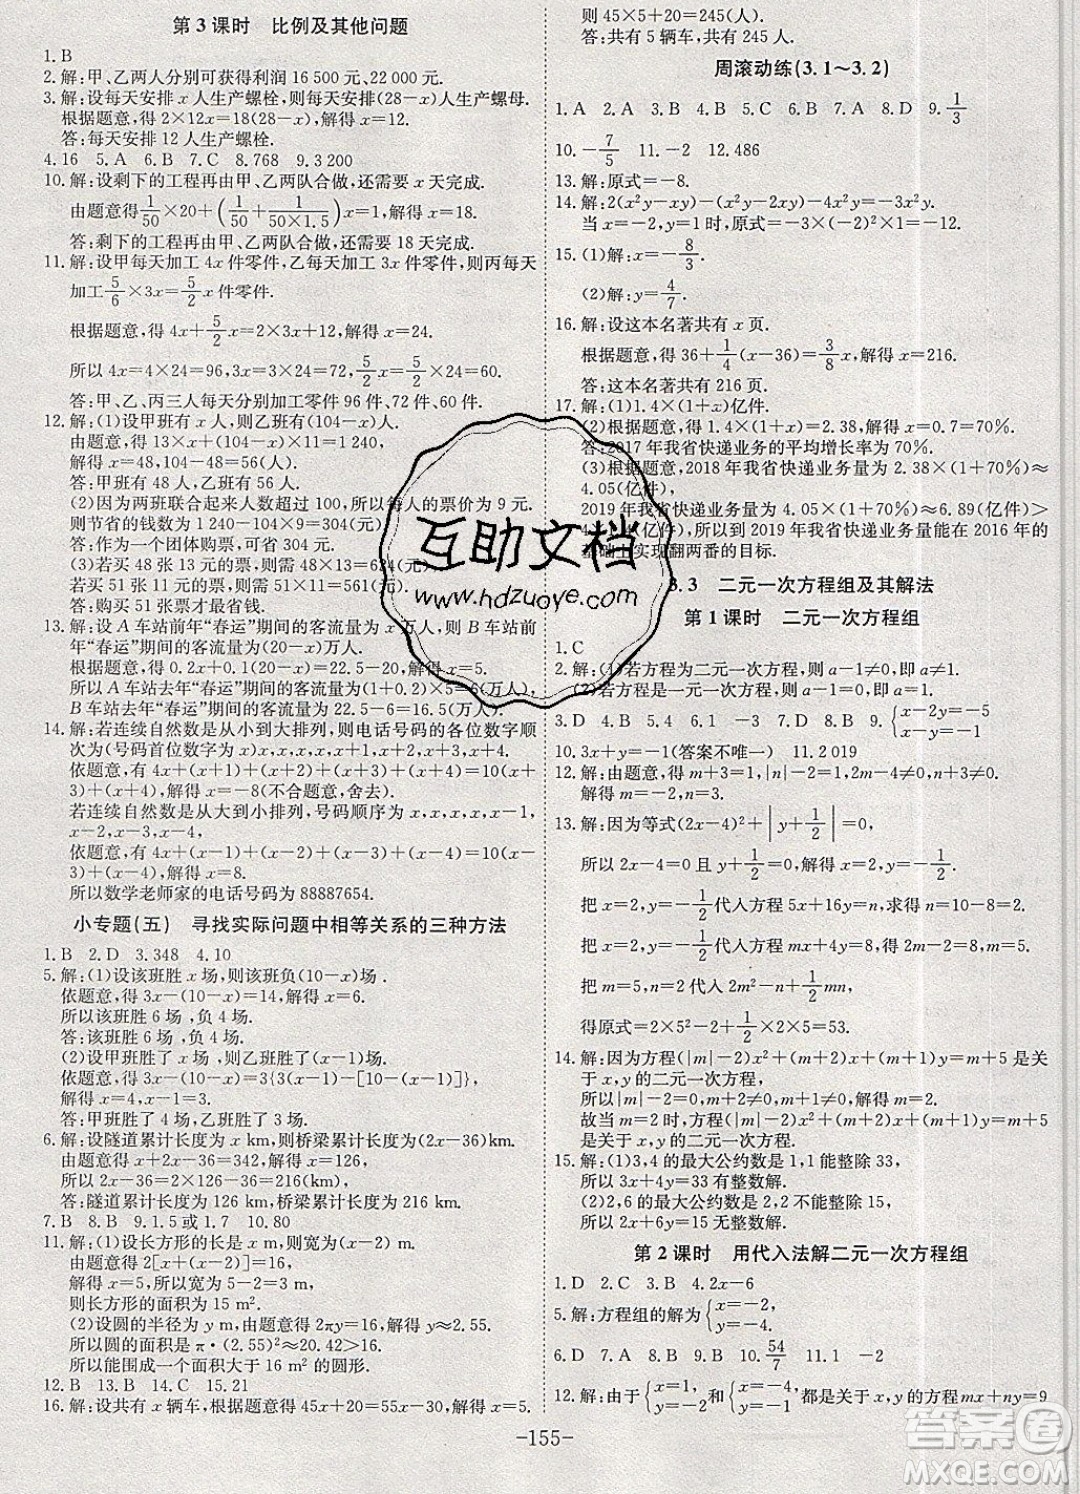 第 3 课时　比例及其他问题
1. B
2. 解:甲、乙两人分别可获得利润 16 500 元、22 000 元.
3. 解:设每天安排 x 人生产螺栓,则每天安排(28-x)人生产螺母.
根据题意,得 2×12x=18(28-x),解得 x=12.
答:每天安排 12 人生产螺栓.
4. 16　5. A　6. B　7. C　8. 768　9. 3 200
10. 解:设剩下的工程再由甲、乙两队合做,还需要 x 天完成.
由题意得 1/50×20+(1/50+1/(50×1.5))x=1,解得 x=18.
答:剩下的工程再由甲、乙两队合做,还需要 18 天完成.
11. 解:设甲每天加工 4x 件零件,乙每天加工 3x 件零件,则丙每天
加工 5/6×3x=5/2x 件零件.
根据题意,得 4x+5/2x=2×3x+12,解得 x=24.
所以 4x=4×24=96,3x=3×24=72,5/2x=5/2×24=60.
答:甲、乙、丙三人每天分别加工 96 件、72 件、60 件零件.
12. 解:(1)设甲班有 x 人,则乙班有(104-x)人.
由题意,得 13×x+(104-x)×11=1 240,
解得 x=48,104-x=104-48=56.
答:甲班有 48 人,乙班有 56 人.
(2)因为两班联合起来人数超过 100,所以每人的票价为 9 元.
则节省的钱数为 1 240-104×9=304(元).
答:作为一个团体购票,可省 304 元.
(3)若买 48 张 13 元的票,则需要 13×48=624(元).
若买 51 张 11 元的票,则需要 11×51=561(元).
答:购买 51 张的票才最省钱.
13. 解:设 A 车站前年“春运”期间的客流量为 x 万人,则 B 车站前
年“春运”期间的客流量为(20-x)万人.
根据题意,得 0.2x+0.1(20-x)=22.5-20,解得 x=5.
所以 A 车站去年“春运”期间的客流量为(1+0.2)×5=6(万人),
B 车站去年“春运”期间的客流量为 22.5-6=16.5(万人).
14. 解:若连续自然数是从小到大排列,则电话号码的各位数字顺
次为(号码首位数字为 x)x,x,x,x,x+1,x+2,x+3,x+4,
依题意,得 4x+(x+1)+(x+2)+(x+3)+(x+4)=8x+10=2x+
8x+3),解得 x=-8(不合题意,舍去)
若连续自然数是从大到小排列,号码顺次为 x,x,x,x,x-1,
x-2,x-3,x-4,
依题意,得 4x+(x-1)+(x-2)+(x-3)+(x-4)=10x+(x-
4),解得 x=8.
所以数学老师家的电话号码为 88887654.
小专题(五)　寻找实际问题中相等关系的三种方法
1. B　2. D　3. 348　4. 10
5. 解:(1)设该班胜 x 场,则该班负(10-x)场.
依题意,得 3x-(10-x)=14,解得 x=6.
所以该班胜 6 场,负 4 场.
答:该班胜 6 场,负 4 场.
(2)设甲班胜了 x 场,则乙班胜了(10-x)场.
依题意,得 3x-(10-x)=3{3(10-x)-[10-(10-x)]},
解得 x=4.
答:甲班胜了 4 场,乙班胜了 3 场.
6. 解:设隧道累计长度为 x km,则桥梁累计长度为(2x-36)km.
由题意得 x+2x-36=342,解得 x=126,
所以 2x-36=2×126-36=216.
答:隧道累计长度为 126 km,桥梁累计长度为 216 km.
7. B　8. B　9. 1.5 或 1.7　10. 80
11. 解:(1)设长方形的长是 x m,则宽为(x-2) m.
由题意得 2[x+(x-2)]=16,
解得 x=5,所以宽为 5-2=3(m).
则长方形的面积为 15 m².
(2)设圆的半径为 y m,由题意得 2πy=16,解得 y≈2.55.
所以圆的面积是 π·(2.55)²≈20.42>16,
所以能围成一个面积大于 16 m² 的圆形.
12. B　13. B　14. C　15. 21
16. 解:设共有 x 辆车,根据题意得 45x+20=50x-5,解得 x=5.
则 45×5+20=245(人).
答:共有 5 辆车,共有 245 人.
周滚动练(3.1~3.2)
1. A　2. A　3. D　4. B　5. C　6. D　7. A　8. D　9. 1/3
10. -7/5　11. -2　12. 486
13. 解:原式=-8.
14. 解:2(x²y-xy)-(x²y-2xy)-4x²y=-3x²y.
当 x=-2,y=1 时,原式=-3×(-2)²×1=-12.
15. (1)解:x=-8/3.
(2)解:y=4/7.
16. 解:设这本名著共有 x 页.
根据题意,得 36+1/4(x-36)=3/8x,解得 x=216.
答:这本名著共有 216 页.
17. 解:(1)1.4×(1+x)亿件.
(2)根据题意,得 1.4×(1+x)=2.38,解得 x=0.7=70%.
答:2017 年我省快递业务的平均增长率为 70%.
(3)根据题意,2018 年我省快递业务量为 2.38×(1+70%)≈
4.05(亿件),
2019 年我省快递业务量为 4.05×(1+70%)≈6.89(亿件)>
(亿件),所以到 2019 年我省快递业务量能在 2016 年的
基础上实现翻两番的目标.
3.3　二元一次方程组及其解法
第 1 课时　二元一次方程组
1. C
2. 解:(1)若方程为二元一次方程,则 a-1≠0,即 a≠1.
(2)若方程是一元一次方程,则 a-1=0,即 a=1.
3. D　4. B　5. C　6. 1　-3　7. D　8. A　9. {x-2y=-5
x-y=-1
10. 3x+y=-1(答案不唯一)　11. 2 019
12. 解:由题意,得 m+3=1,|n|-2=1,且 n-3≠0.
解得 m=-2,n=-3.
13. 解:因为等式(2x-4)²+|y+1/2|=0,
所以 2x-4=0 且 y+1/2=0,解得 x=2,y=-1/2.
把 x=2,y=-1/2 代入方程 5x+16y=n,得 n=2.
把 x=2,y=-1/2 代入方程 mx+4y=8,得 m=5.
把 m=5,n=2 代入 m²-2n+1/2mn,
得原式=5²-2²+1/2×2×5=53.
14. 解:因为方程(|m|-2)x²+(m+2)x+(m+1)y=m+5 是关
于 x,y 的二元一次方程,
所以|m|-2=0,m+2≠0,m+1≠0,解得 m=2.
故当 m=2 时,方程(|m|-2)x²+(m+2)x+(m+1)y=m+5
是关于 x,y 的二元一次方程.
15. 解:(1)3,4 的最大公约数是 1,1 能整除 33,
所以 3x+4y=33 有整数解.
(2)2,6 的最大公约数是 2,2 不能整除 15,
所以 2x+6y=15 无整数解.
第 2 课时　用代入法解二元一次方程组
1. D　2. C　3. B　4. 2x-6
5. 解:方程组的解为{x=-2,
y=-4.
6. D　7. A　8. B　9. B　10. 54/7　11. 1　-2
12. 解:由于{x=1, 和{x=-2, 都是关于 x,y 的方程 mx+ny=9
-155-
互助文档
www.hdzuoye.com
答案圈
MXQE.COM